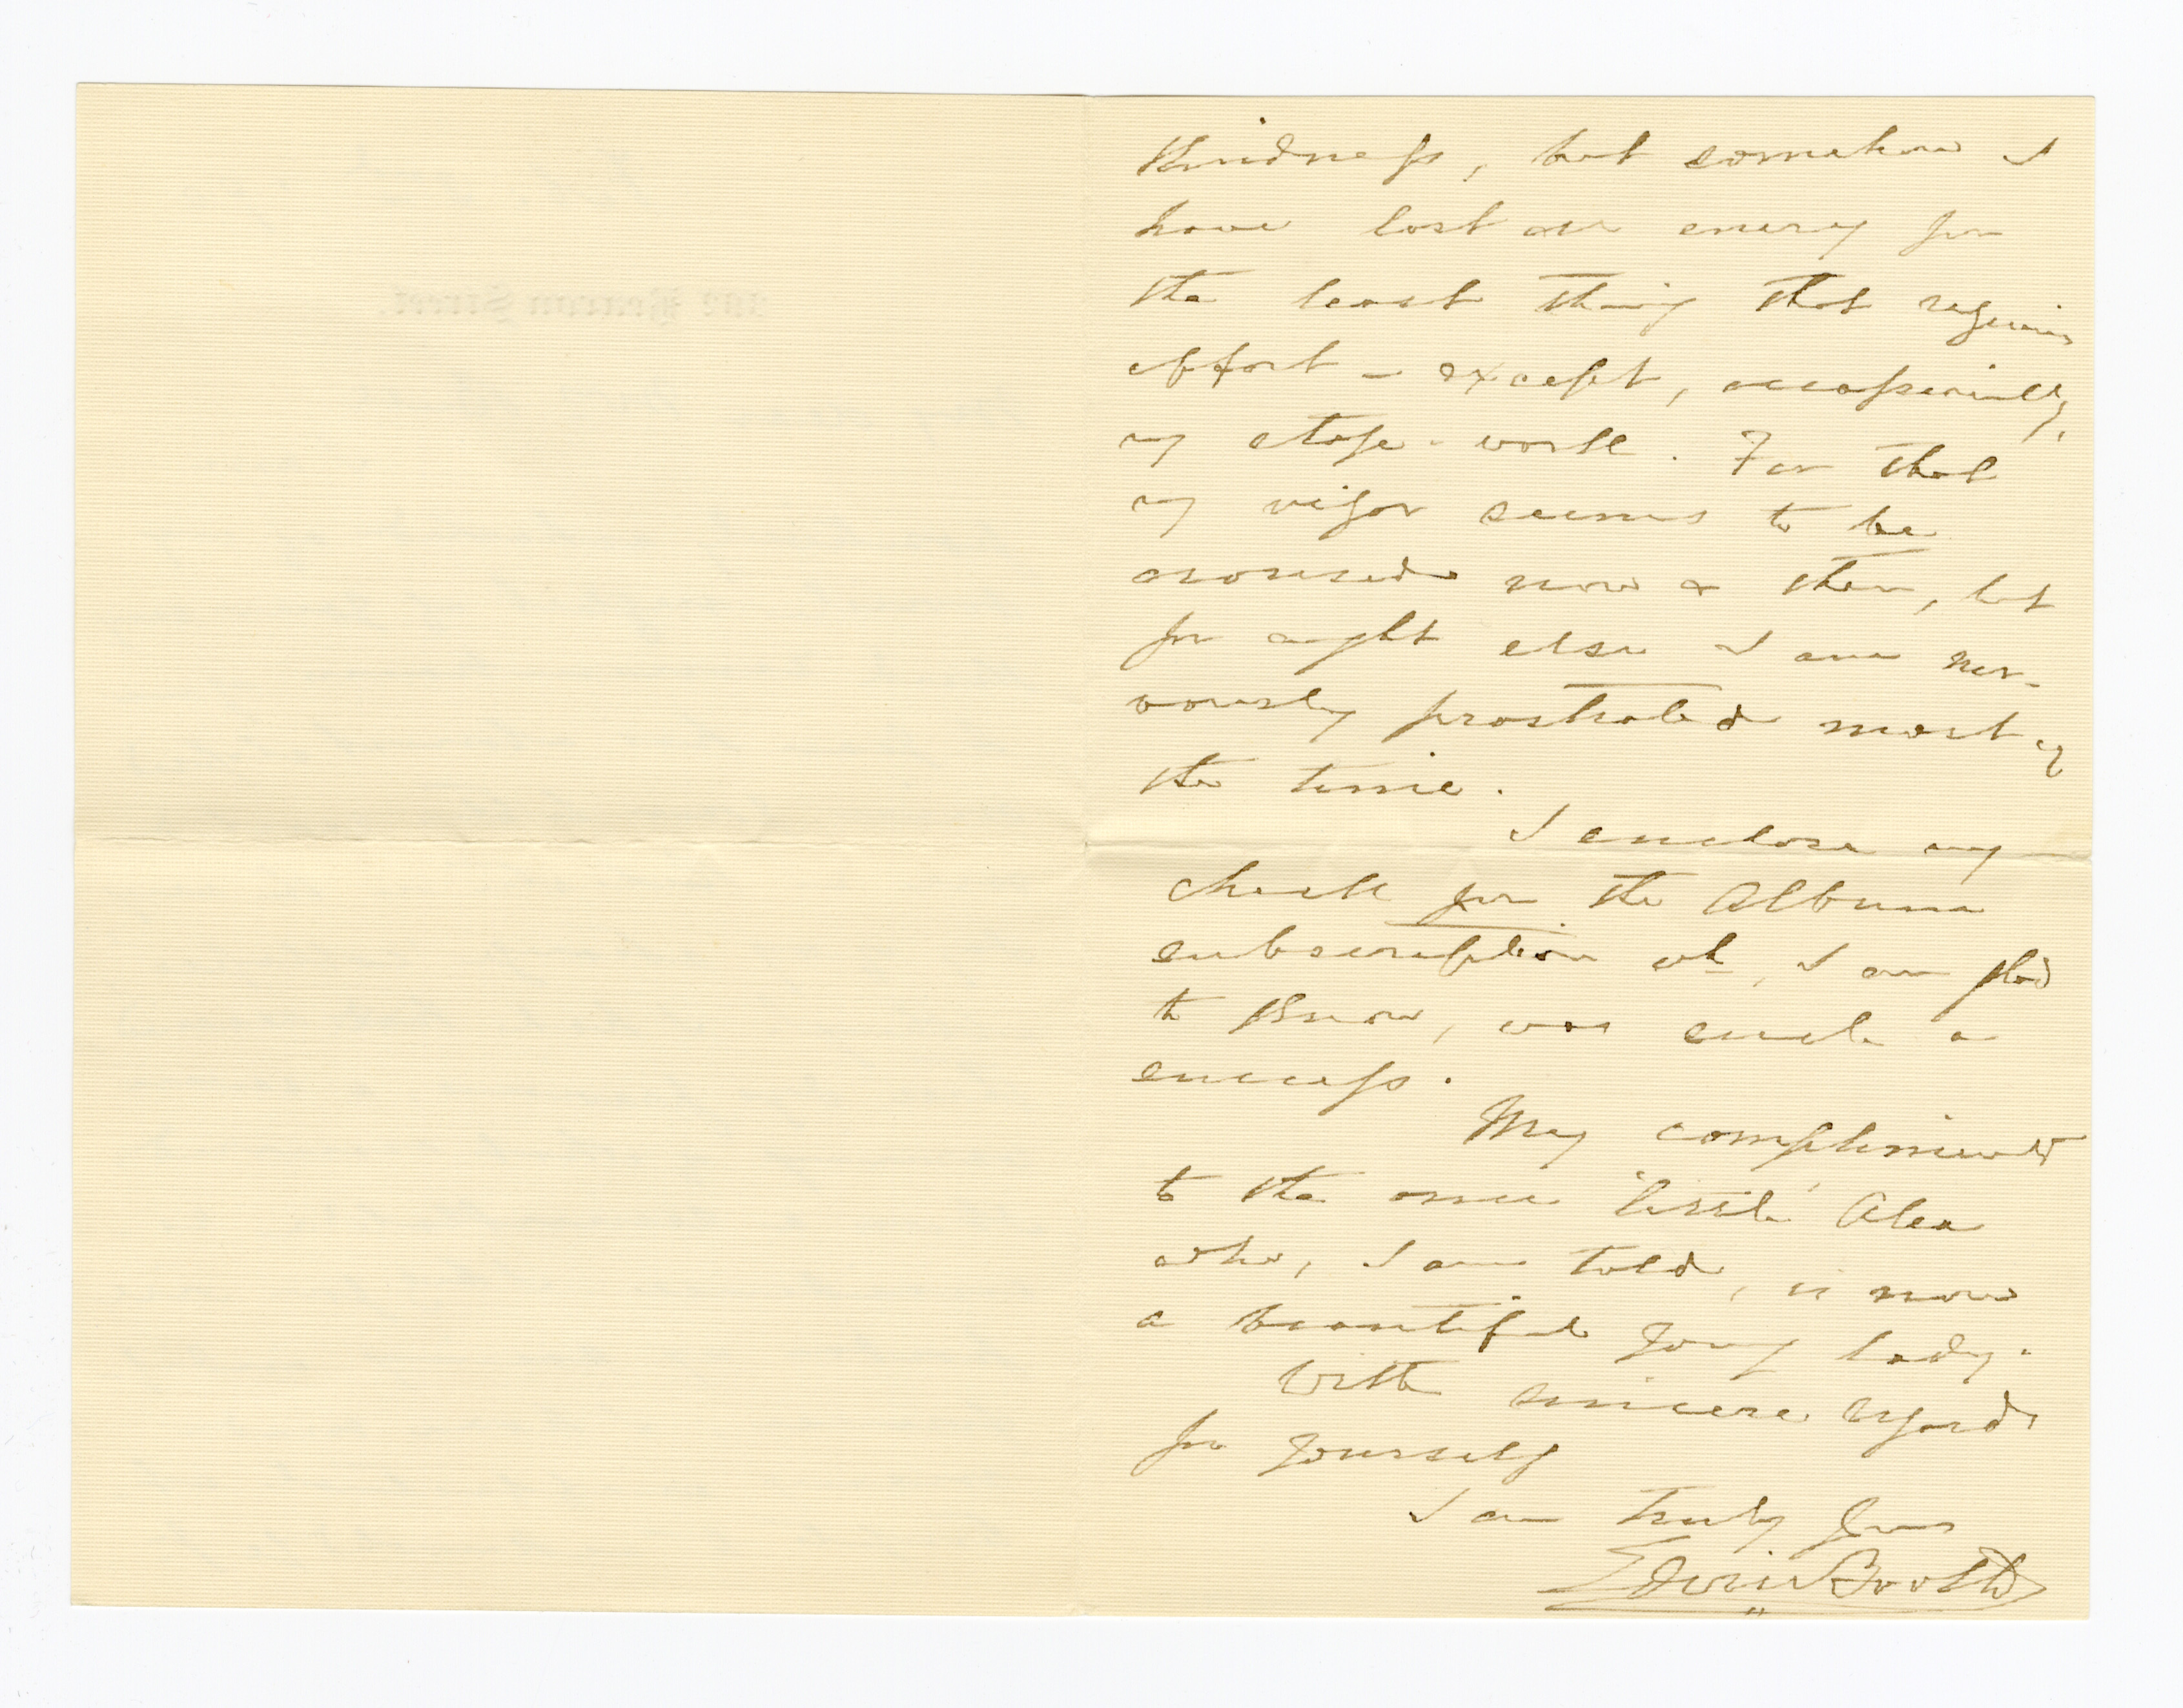 Kindness, but somehow I
have lost all energy for
the least thing that requires
effort – except, occasionally,
my stage-work. For that
my vigor seems to be
aroused now & then, but
for aught else I am ner-
vously prostrated most of
the time.
I enclose my
check for the Album
subscription wh, I am glad
to know, was such a
success.
My compliments
to the once 'little' Alea
who, I am told, is now
a beautiful young lady.
With sincere regards
for yourself
I am truly yours
Edwin Booth